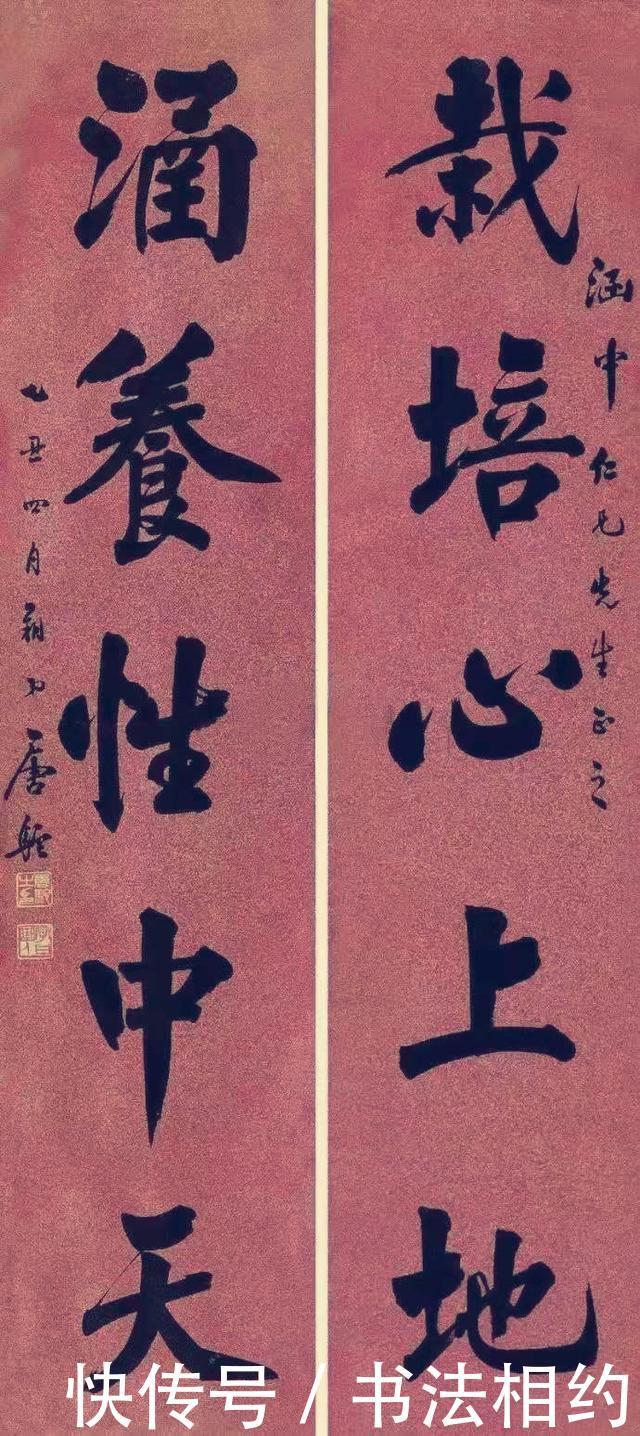 涵中仁兄先生正之
栽培心上地
涵養性中天
乙丑四月唐駝
快传号 / 书法相约